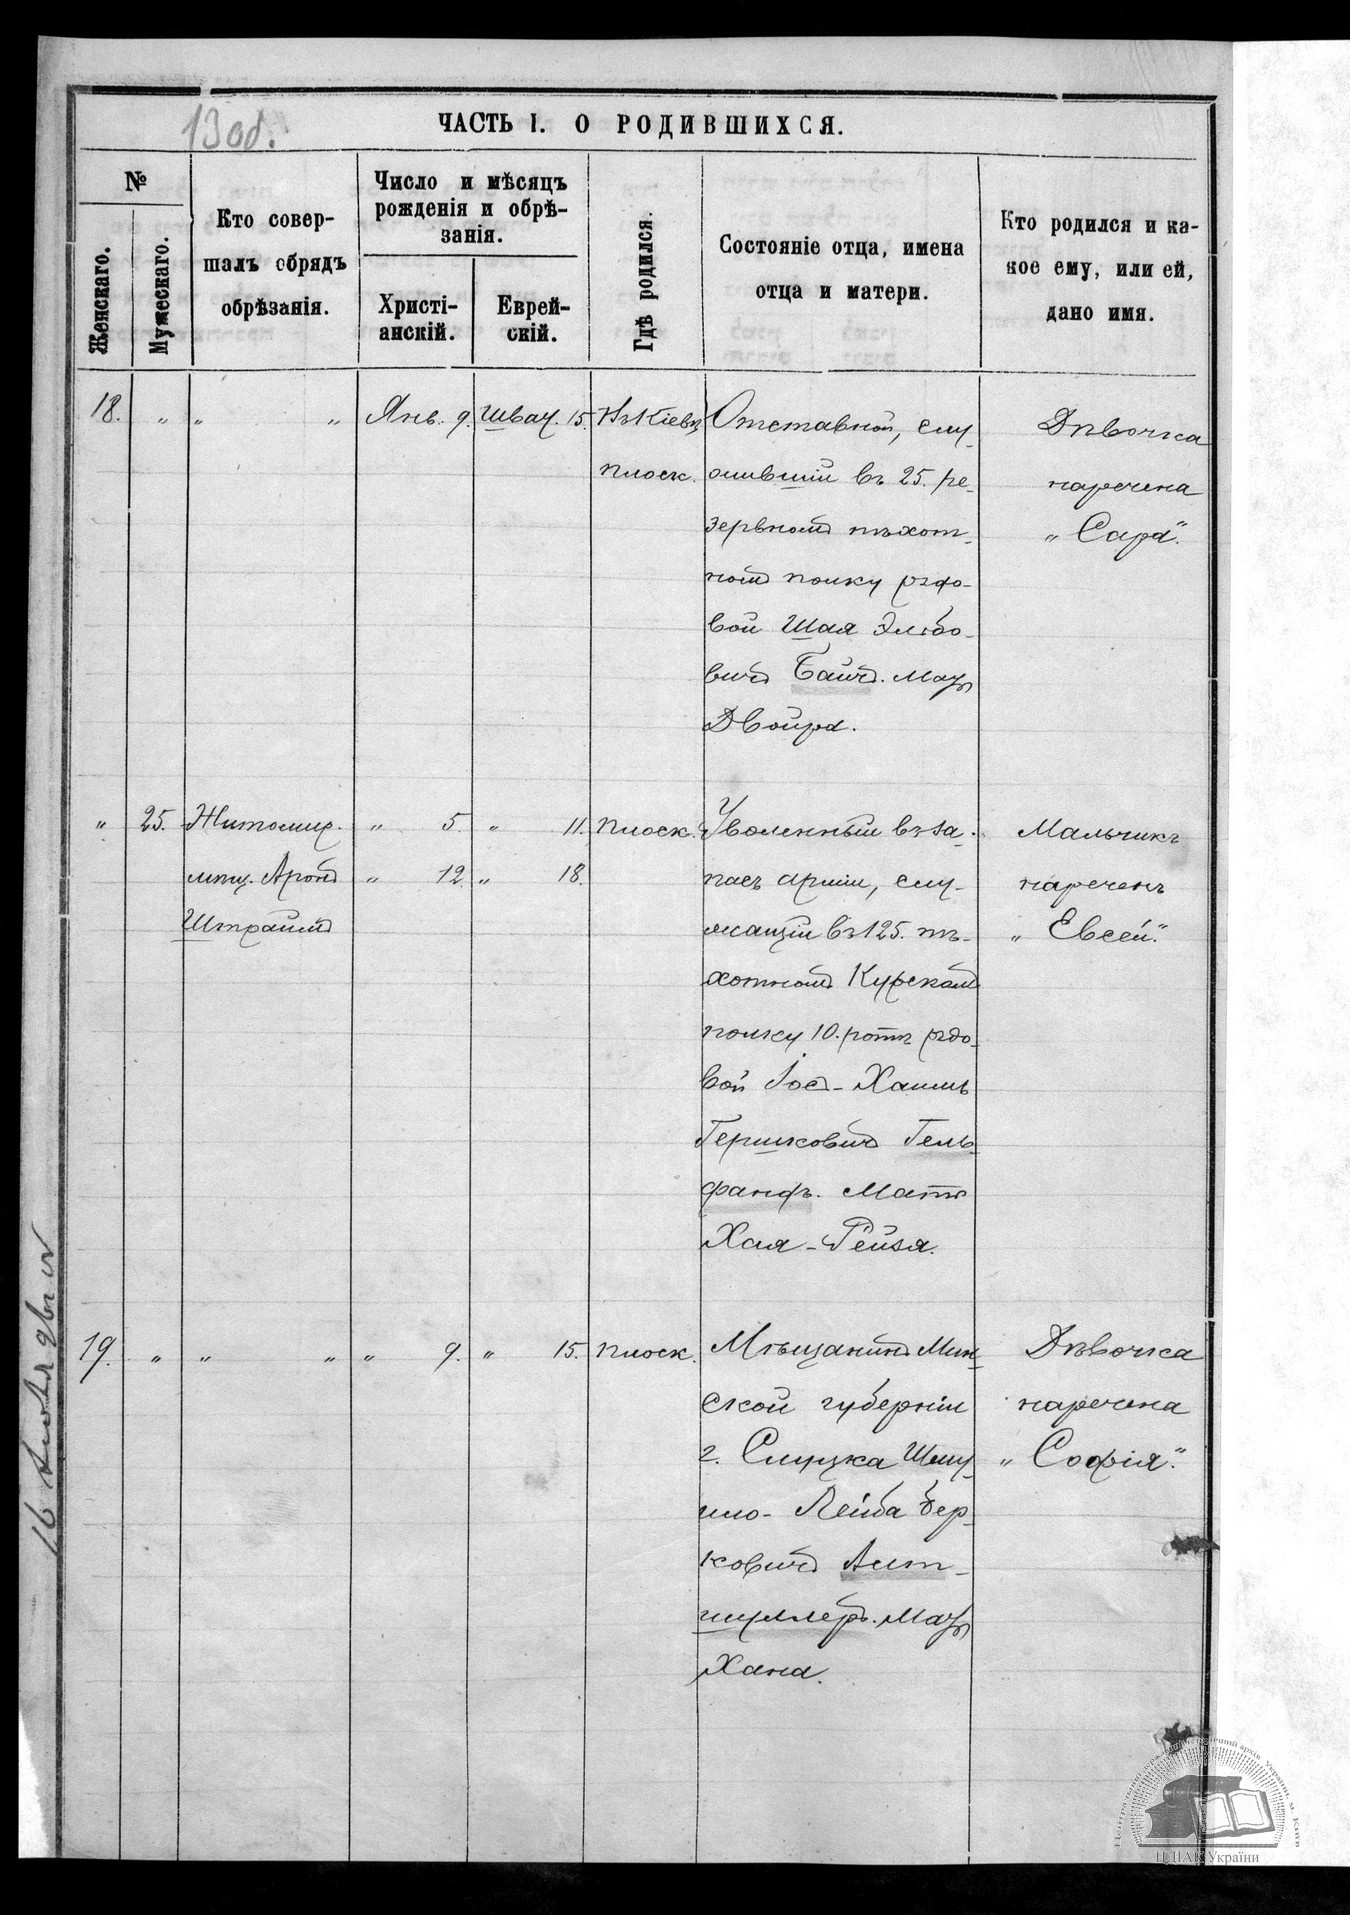 13 об.
ЧАСТЬ I. О РОДИВШИХСЯ.
№
Женскаго.
Мужескаго.
Кто совер-
шалъ обрядъ
обрѣзанія.
Число и мѣсяцъ
рожденія и обрѣ-
занія.
Христі-
анскій.
Еврей-
скій.
Гдѣ родился.
Состояніе отца, имена
отца и матери.
Кто родился и ка-
кое ему, или ей,
дано имя.
18. " " " Янв. 9. Шват. 15. Въ Кіевѣ
плоск.
Отставной, слу-
жившій въ 25. ре-
зервномъ пѣхот-
номъ полку рядо-
вой Шая Эльбо-
вичъ Байчъ. Мать
Двойра.
Дѣвочка
наречена
"Сара".
" 25. Житомир. " 5. " 11. плоск.
мѣщ. Аронъ " 12. " 18.
Штраймъ
Уволенный въ за-
пасъ арміи, слу-
жащій въ 125. пѣ-
хотномъ Курскомъ
полку 10. ротѣ рядо-
вой Іосъ-Хаимъ
Гершковичъ Гель-
фандъ. Мать
Хая-Рейзя.
Мальчикъ
нареченъ
"Евсей".
19. " " " " 9. " 15. плоск.
Мѣщанинъ Мин-
ской губерніи
г. Слуцка Шму-
ило-Лейба Бер-
ковичъ Альт-
шуллеръ. Мать
Хана.
Дѣвочка
наречена
"Софія".
16
ЦДІАК України